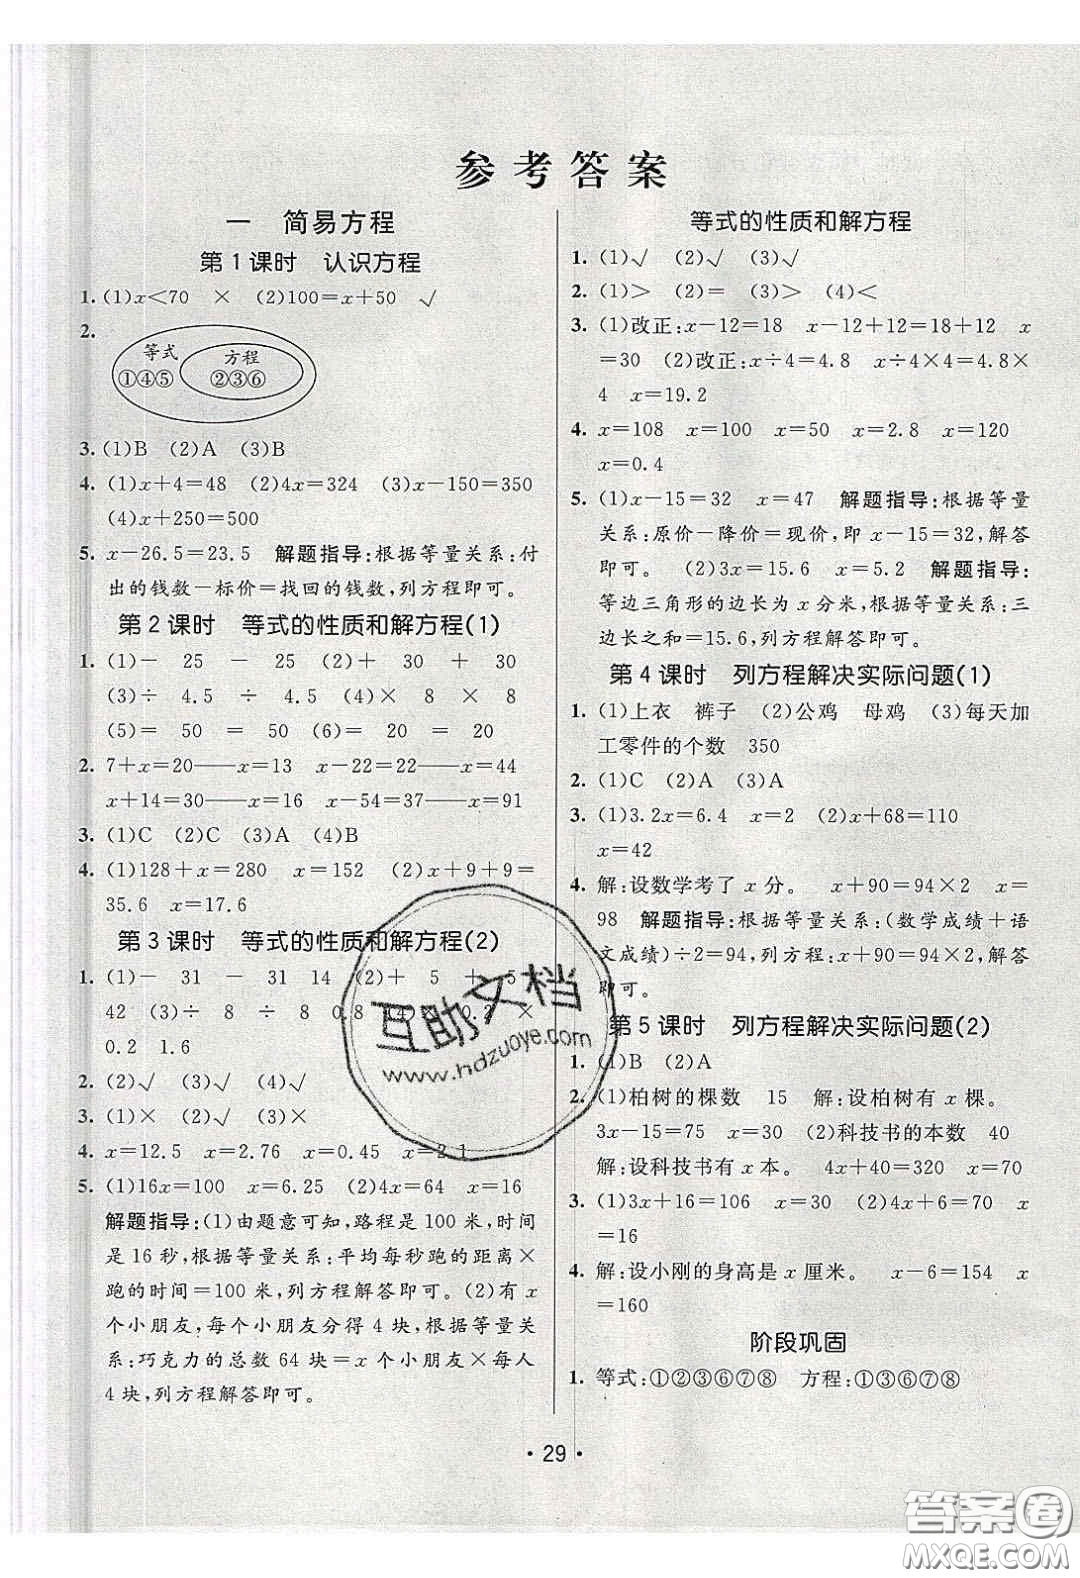 参考答案
一 简易方程
第1课时 认识方程
1. (1)x<70 × (2)100=x+50 √
2.
等式 方程
①④⑤ ②③⑥
3. (1)B (2)A (3)B
4. (1)x+4=48 (2)4x=324 (3)x-150=350
(4)x+250=500
5. x-26.5=23.5 解题指导:根据等量关系:付
出的钱数-标价=找回的钱数,列方程即可。
第2课时 等式的性质和解方程(1)
1. (1)- 25 - 25 (2)+ 30 + 30
(3)÷ 4.5 ÷ 4.5 (4)× 8 × 8
(5)= 50 = 50 (6)= 20 = 20
2. 7+x=20——x=13 x-22=22——x=44
x+14=30——x=16 x-54=37——x=91
3. (1)C (2)C (3)A (4)B
4. (1)128+x=280 x=152 (2)x+9+9=
35.6 x=17.6
第3课时 等式的性质和解方程(2)
1. (1)- 31 - 31 14 (2)+ 5 + 5
42 (3)÷ 8 ÷ 8 0.8 (4)× 0.2 ×
0.2 1.6
2. (2)√ (3)√ (4)√
3. (1)× (2)√ (3)×
4. x=12.5 x=2.76 x=0.45 x=2.1
5. (1)16x=100 x=6.25 (2)4x=64 x=16
解题指导:(1)由题意可知,路程是100米,时间
是16秒,根据等量关系:平均每秒跑的距离×
跑的时间=100米,列方程解答即可。(2)有x
个小朋友,每个小朋友分得4块,根据等量关
系:巧克力的总数64块=x个小朋友×每人
4块,列方程解答即可。
等式的性质和解方程
1. (1)√ (2)√ (3)√
2. (1)> (2)= (3)> (4)<
3. (1)改正:x-12=18 x-12+12=18+12 x
=30 (2)改正:x÷4=4.8 x÷4×4=4.8×
4 x=19.2
4. x=108 x=100 x=50 x=2.8 x=120
x=0.4
5. (1)x-15=32 x=47 解题指导:根据等量
关系:原价-降价=现价,即x-15=32,解答
即可。 (2)3x=15.6 x=5.2 解题指导:
等边三角形的边长为x分米,根据等量关系:三
边长之和=15.6,列方程解答即可。
第4课时 列方程解决实际问题(1)
1. (1)上衣 裤子 (2)公鸡 母鸡 (3)每天加
工零件的个数 350
2. (1)C (2)A (3)A
3. (1)3.2x=6.4 x=2 (2)x+68=110
x=42
4. 解:设数学考了x分。 x+90=94×2 x=
98 解题指导:根据等量关系:(数学成绩+语
文成绩)÷2=94,列方程:x+90=94×2,解答
即可。
第5课时 列方程解决实际问题(2)
1. (1)B (2)A
2. (1)柏树的棵数 15 解:设柏树有x棵。
3x-15=75 x=30 (2)科技书的本数 40
解:设科技书有x本。 4x+40=320 x=70
3. (1)3x+16=106 x=30 (2)4x+6=70 x
=16
4. 解:设小刚的身高是x厘米。 x-6=154 x
=160
阶段巩固
1. 等式:①②③⑥⑦⑧ 方程:①③⑥⑦⑧
·29·
互助文档
www.hdzuoye.com
答案圈
MXQE.COM